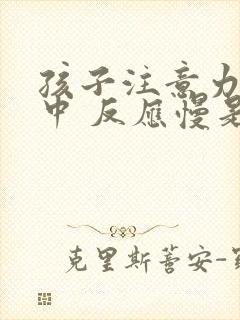 孩子注意力
中 反应慢是
克里斯蒂安-